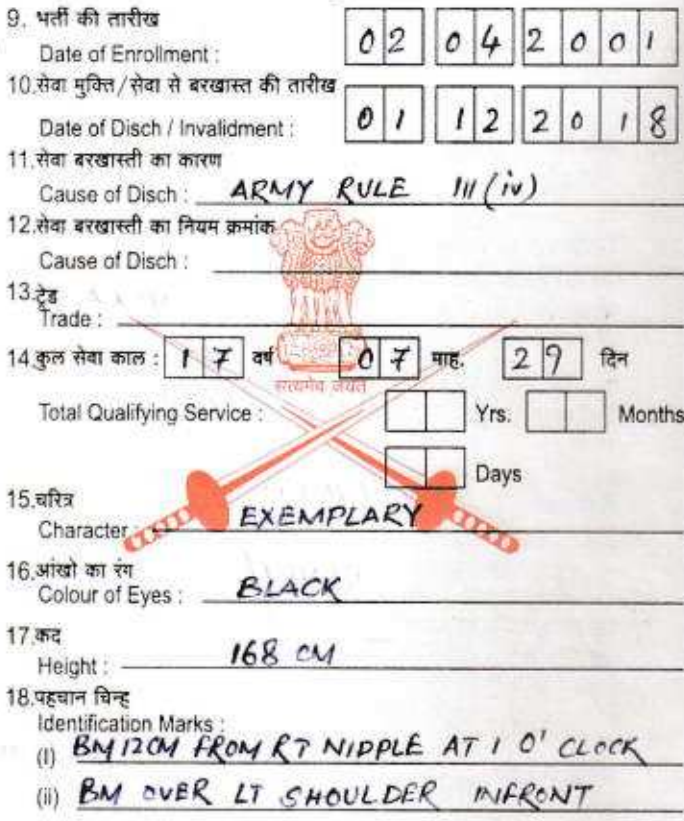 9. भर्ती की तारीख
Date of Enrollment : 02 04 2001
10.सेवा मुक्ति/सेवा से बरखास्त की तारीख
Date of Disch / Invalidment : 01 12 2018
11.सेवा बरखास्ती का कारण
Cause of Disch : ARMY RULE III (iv)
12.सेवा बरखास्ती का नियम क्रमांक
Cause of Disch :
13.ट्रेड
Trade :
14.कुल सेवा काल : 17 वर्ष 07 माह. 29 दिन
सत्यमेव जयते
Total Qualifying Service : Yrs. Months
Days
15.चरित्र
Character : EXEMPLARY
16.आंखो का रंग
Colour of Eyes : BLACK
17.कद
Height : 168 CM
18.पहचान चिन्ह
Identification Marks :
(i) BM 12CM FROM RT NIPPLE AT 1 O' CLOCK
(ii) BM OVER LT SHOULDER INFRONT